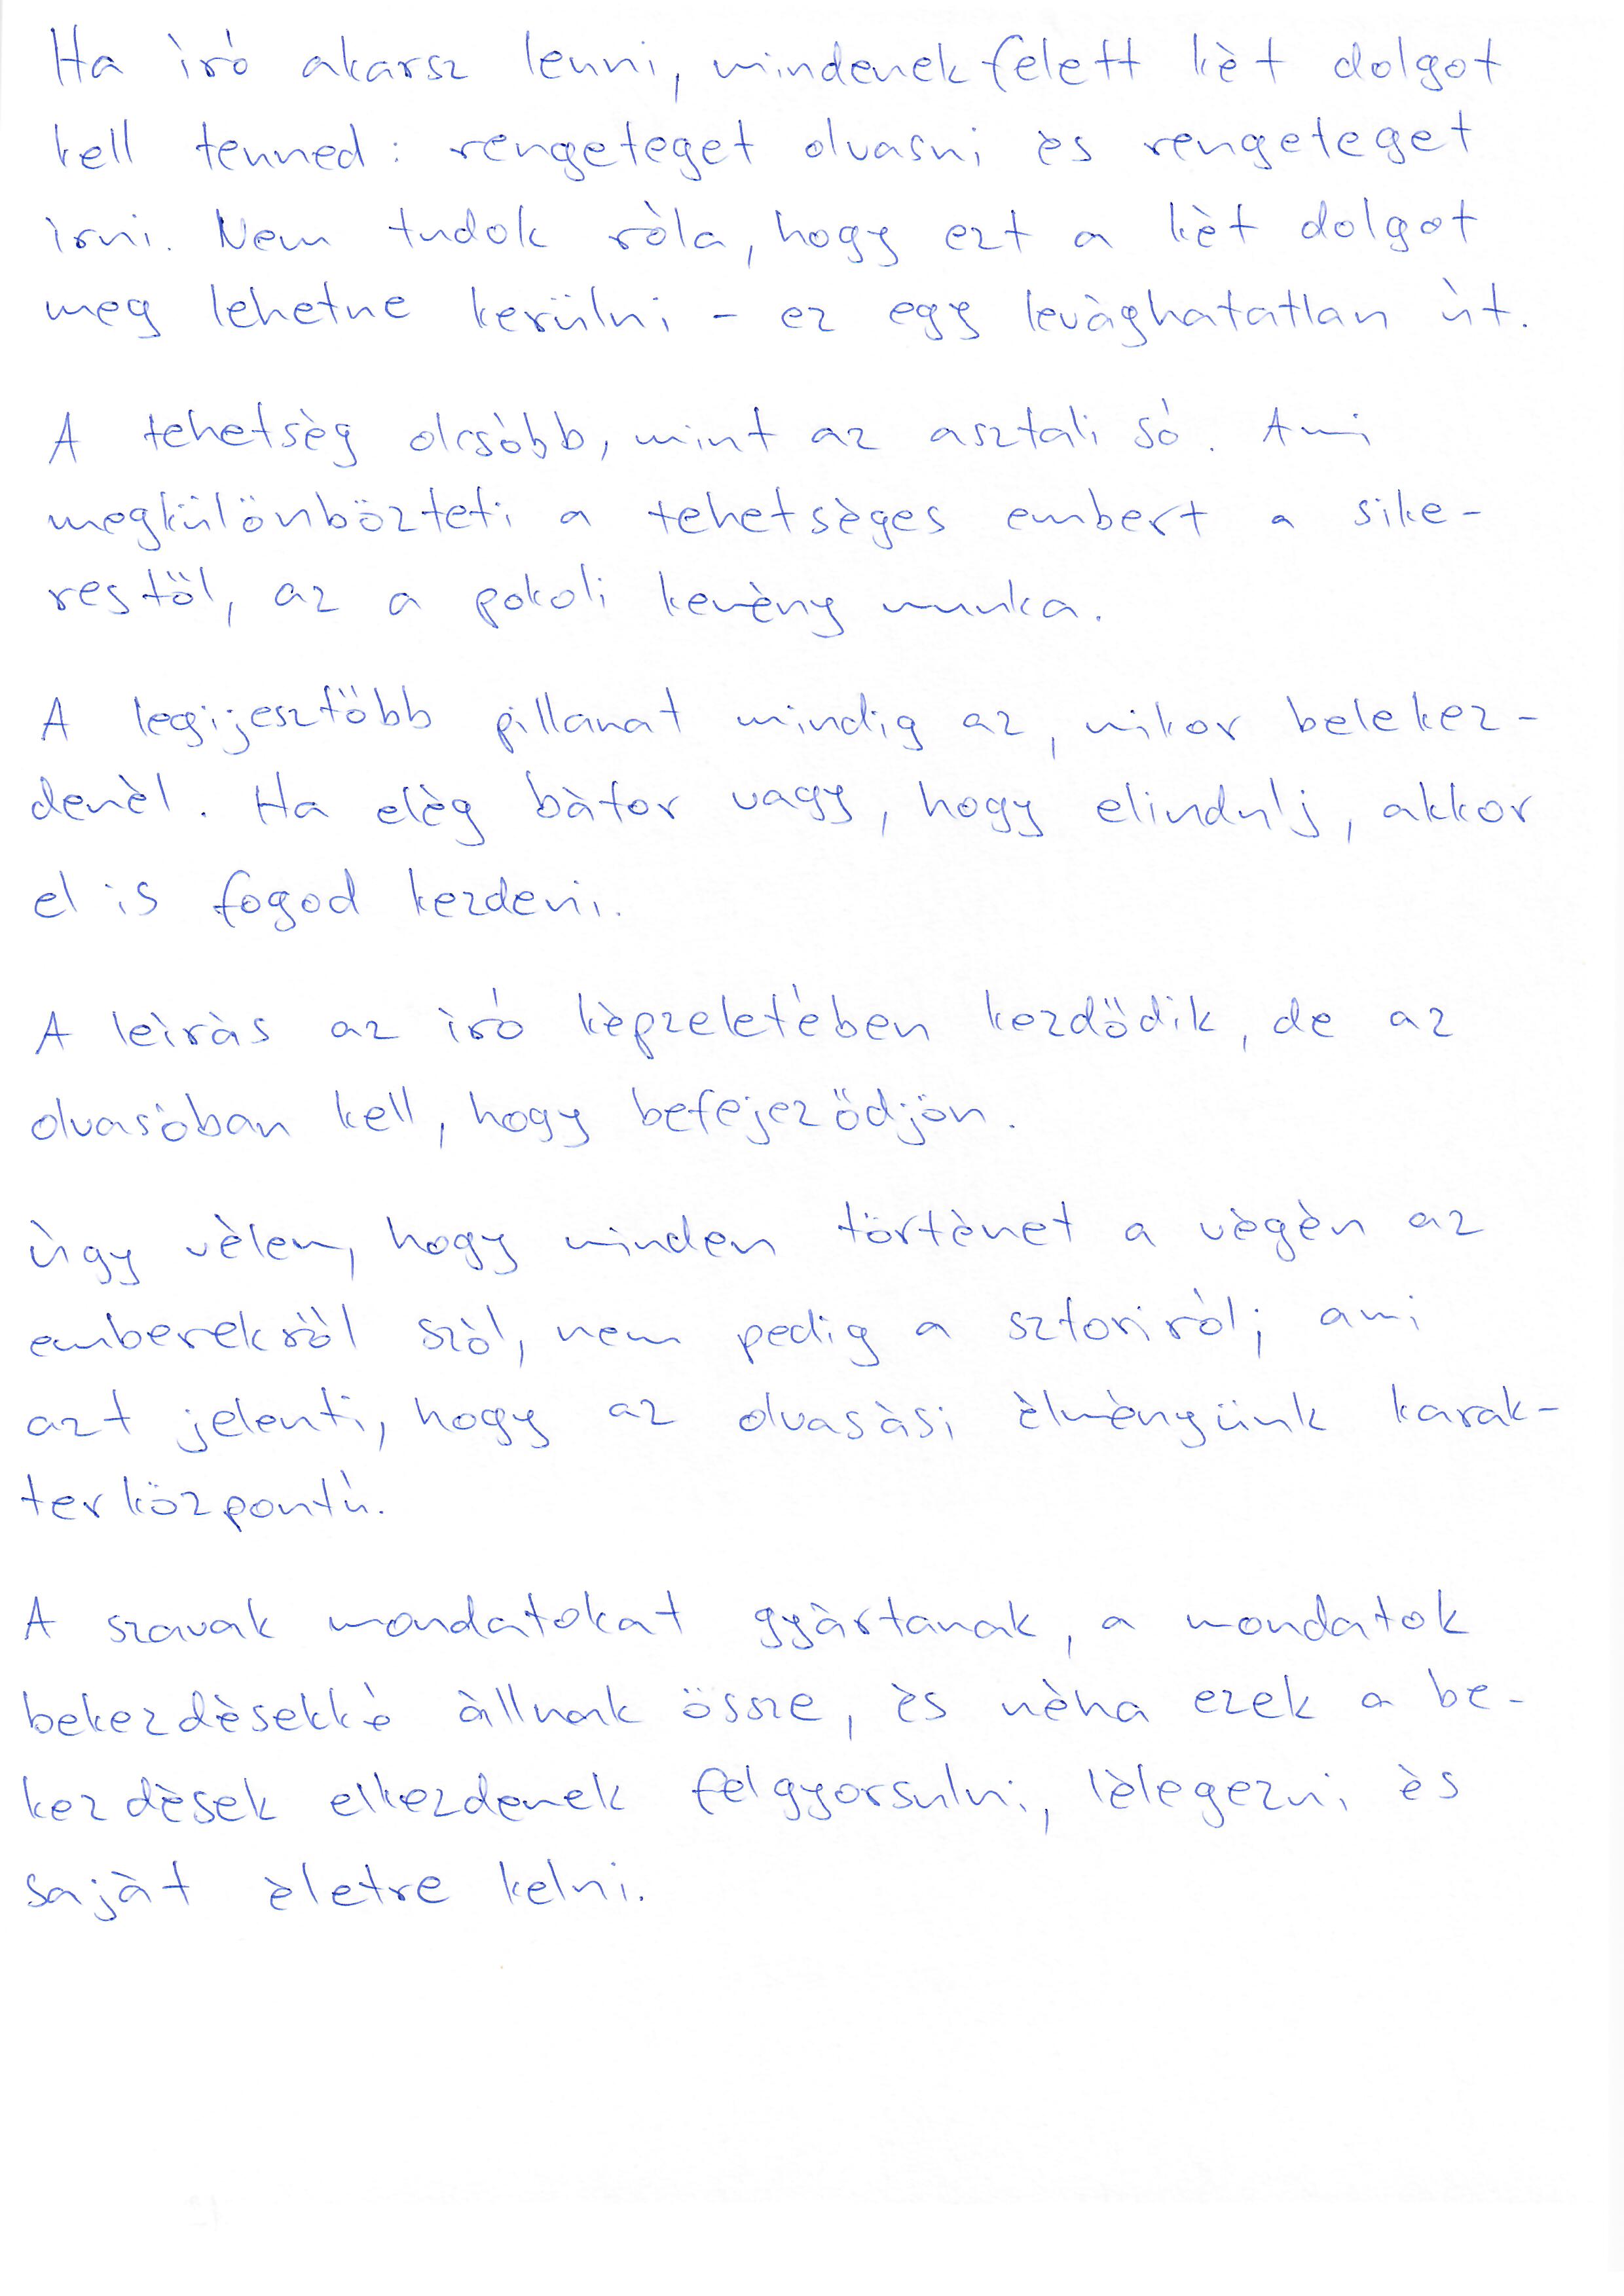 Ha író akarsz lenni, mindenekfelett két dolgot
kell tenned: rengeteget olvasni és rengeteget
írni. Nem tudok róla, hogy ezt a két dolgot
meg lehetne kerülni - ez egy levághatatlan út.
A tehetség olcsóbb, mint az asztali só. Ami
megkülönbözteti a tehetséges embert a sike-
restől, az a pokoli kemény munka.
A legijesztőbb pillanat mindig az, mikor belekez-
denél. Ha elég bátor vagy, hogy elindulj, akkor
el is fogod kezdeni.
A leírás az író képzeletében kezdődik, de az
olvasóban kell, hogy befejeződjön.
Úgy vélem, hogy minden történet a végén az
emberekről szól, nem pedig a sztoriról; ami
azt jelenti, hogy az olvasási élményünk karak-
terközpontú.
A szavak mondatokat gyártanak, a mondatok
bekezdésekké állnak össze, és néha ezek a be-
kezdések elkezdenek felgyorsulni, lélegezni és
saját életre kelni.